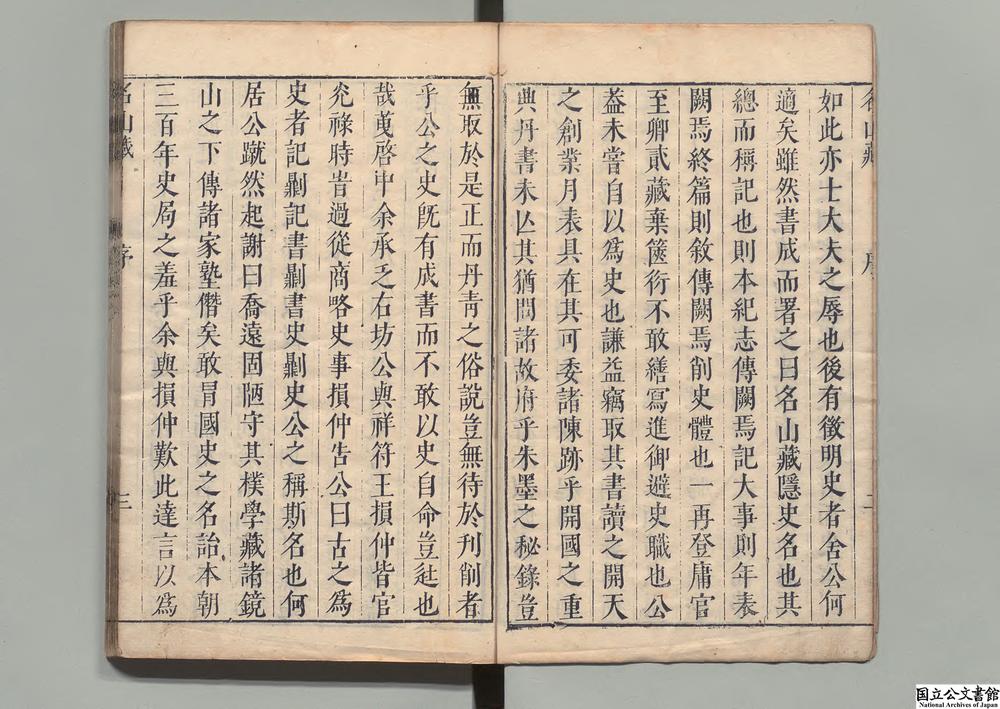 名山藏 序 二
如此亦士大夫之辱也後有徵明史者舍公何
適矣雖然書成而署之曰名山藏隱史名也其
總而稱記也則本紀志傳闕焉記大事則年表
闕焉終篇則敘傳闕焉削史體也一再登庸官
至卿貳藏棄篋衍不敢繕寫進御避史職也公
葢未嘗自以爲史也謙益竊取其書讀之開天
之創業月表具在其可委諸陳跡乎開國之重
典丹書未亾其猶問諸故府乎朱墨之秘錄豈
無取於是正而丹青之俗說豈無待於刋削者
乎公之史旣有成書而不敢以史自命豈迋也
哉蒐啓中余承乏右坊公與祥符王損仲皆官
光祿時皆過從商略史事損仲告公曰古之爲
史者記剿記書剿書史剿史公之稱斯名也何
居公蹴然起謝曰喬遠固陋守其樸學藏諸鏡
山之下傳諸家塾僭矣敢冒國史之名詒本朝
三百年史局之羞乎余與損仲歎此達言以爲
名山藏 序 三
国立公文書館
National Archives of Japan